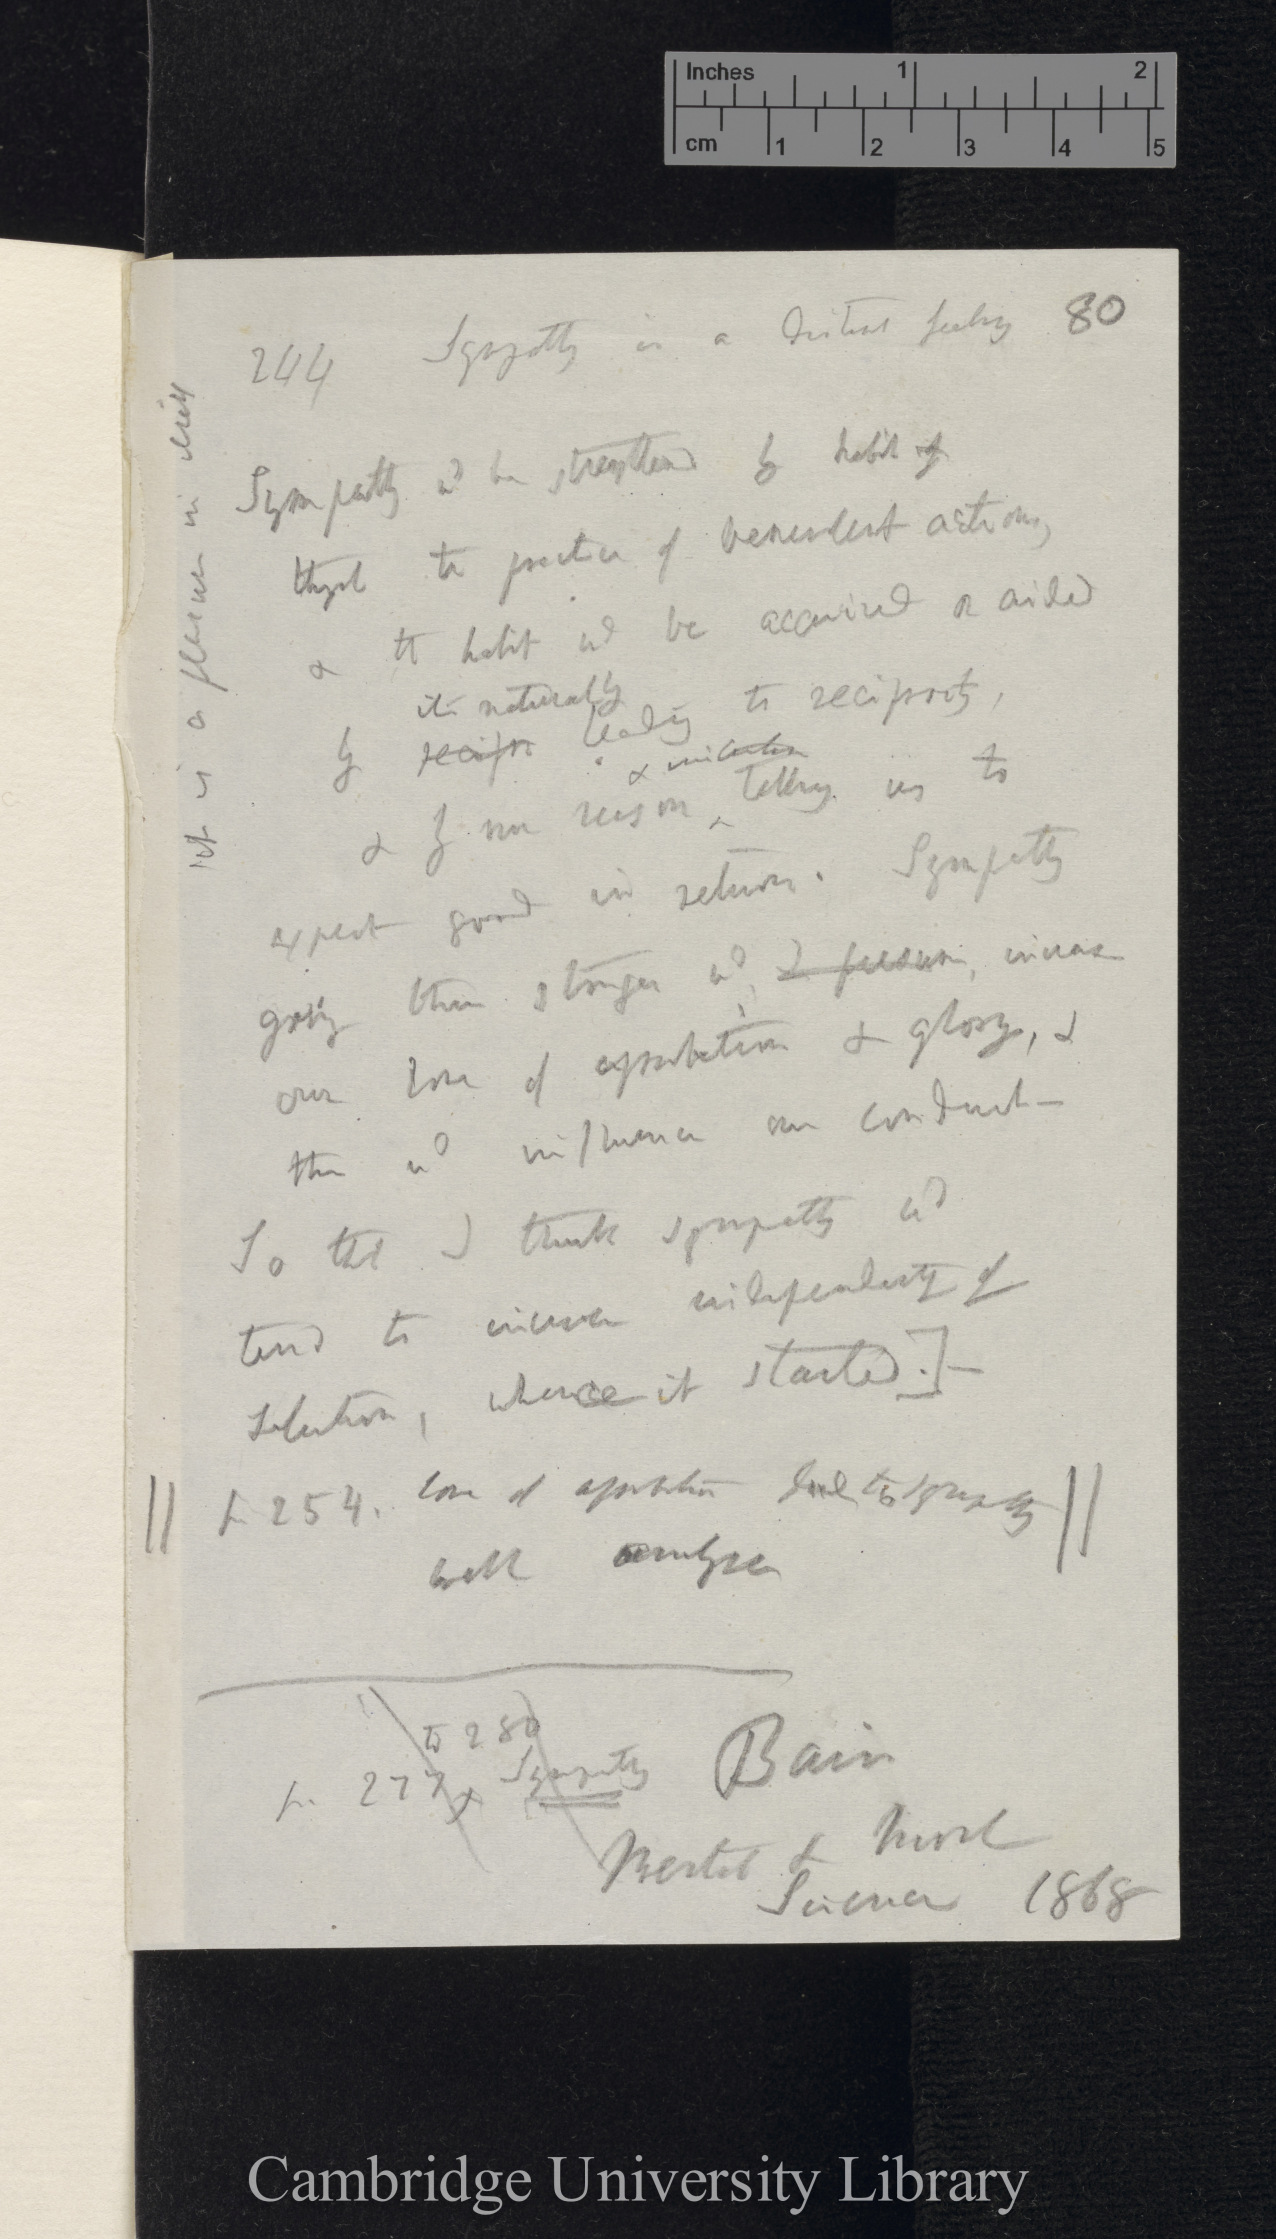 Inches 1 2
cm 1 2 3 4 5
80
244 Sympathy is a distinct feeling
it is a pleasure in itself
Sympathy wd be strengthened by habit
through the practice of benevolent actions,
& the habit wd be acquired or aided
its naturally
by recipro leading to reciprocity,
& imitation
& by our reason telling us to
expect good in return. Sympathy
growing thus stronger wd, I presume, increase
our love of approbation & glory, &
this wd influence our conduct—
So that I think sympathy wd
tend to increase independently of
Selection, whence it started.]—
p. 254. love of approbation due to sympathy
well analysed
to 280
p. 277 & Sympathy Bain
Mental & Moral
Science 1868
Cambridge University Library